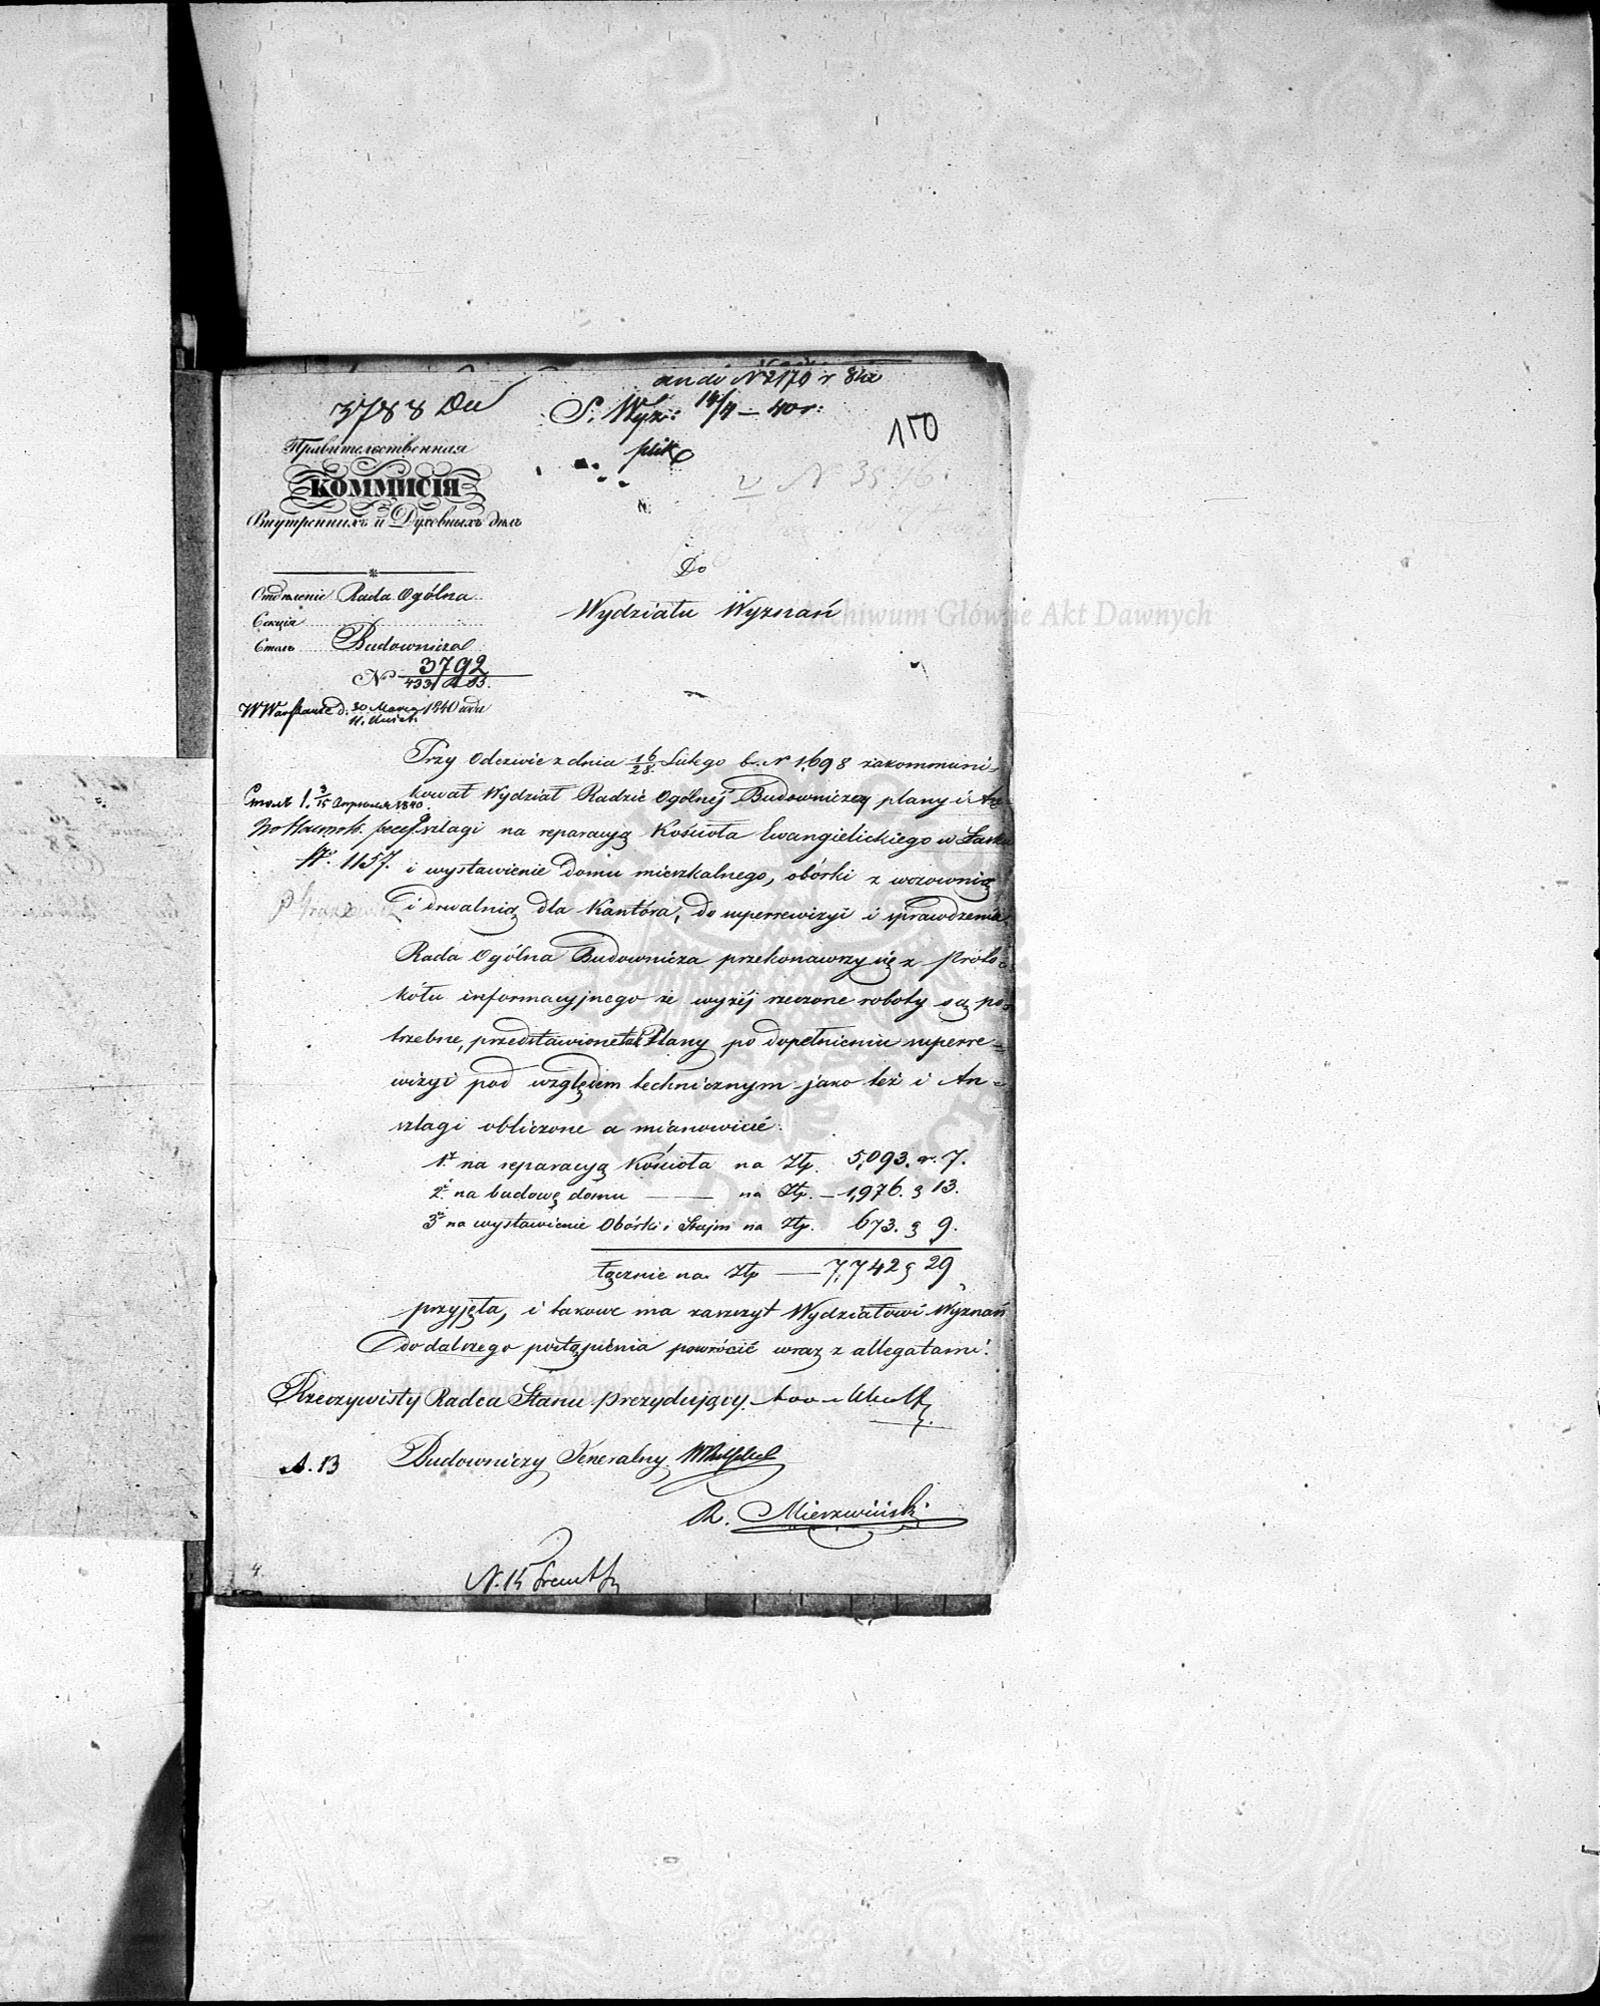 3788
S. Wyz: 14/4 – 40 r:
plik
150
Правительственная
КОММИСІЯ
Внутреннихъ и Духовныхъ дѣлъ
Отдѣленіе Rada Ogólna
Секція
Столъ Budownicza
N 3792
W Warszawie d. 30 Marca 11 Kwiet. 1840 года
Do
Wydziału Wyznań
Archiwum Główne Akt Dawnych
Przy Odezwie z dnia 16/28 Lutego b. r. N 1,698 zakommuni-
kował Wydział Radzie Ogólnéj Budowniczéj plany i An-
szlagi na reparacyą Kościoła Ewangielickiego w Łasku
i wystawienie domu mieszkalnego, obórki z wozownią
i drwalnią dla Kantora, do superrewizyi i sprawdzenia.
Столъ 1. 3/15 Апрѣля 1840.
№ 1157.
Rada Ogólna Budownicza przekonawszy się z Proto-
kółu informacyjnego że wyżéj rzeczone roboty są po-
trzebne, przedstawione tak Plany po dopełnieniu superre-
wizyi pod względem technicznym jako też i An-
szlagi obliczone a mianowicie:
1. na reparacyą Kościoła na Złp. 5,093. gr. 7.
2. na budowę domu — na Złp. – 1,976. g 13.
3. na wystawienie Obórki i Stajni na Złp. 673. g 9.
łącznie na Złp — 7,742 g 29
przyjęła, i takowe ma zaszczyt Wydziałowi Wyznań
do dalszego postąpienia powrócić wraz z allegatami.
Archiwum Główne Akt Dawnych
Rzeczywisty Radca Stanu prezydujący.
A. 13
Budowniczy Jeneralny
R. Mierzwiński
4